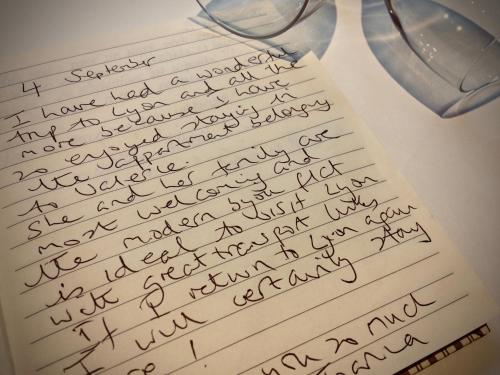 4 September
I have had a wonderful
trip to Lyon and all the
more because I have
so enjoyed staying in
the appartment belonging
to Valerie.
She and her family are
most welcoming and
the modern flat
is ideal to visit Lyon
with great transport links
If I return to Lyon again
I will certainly stay
!
you so much